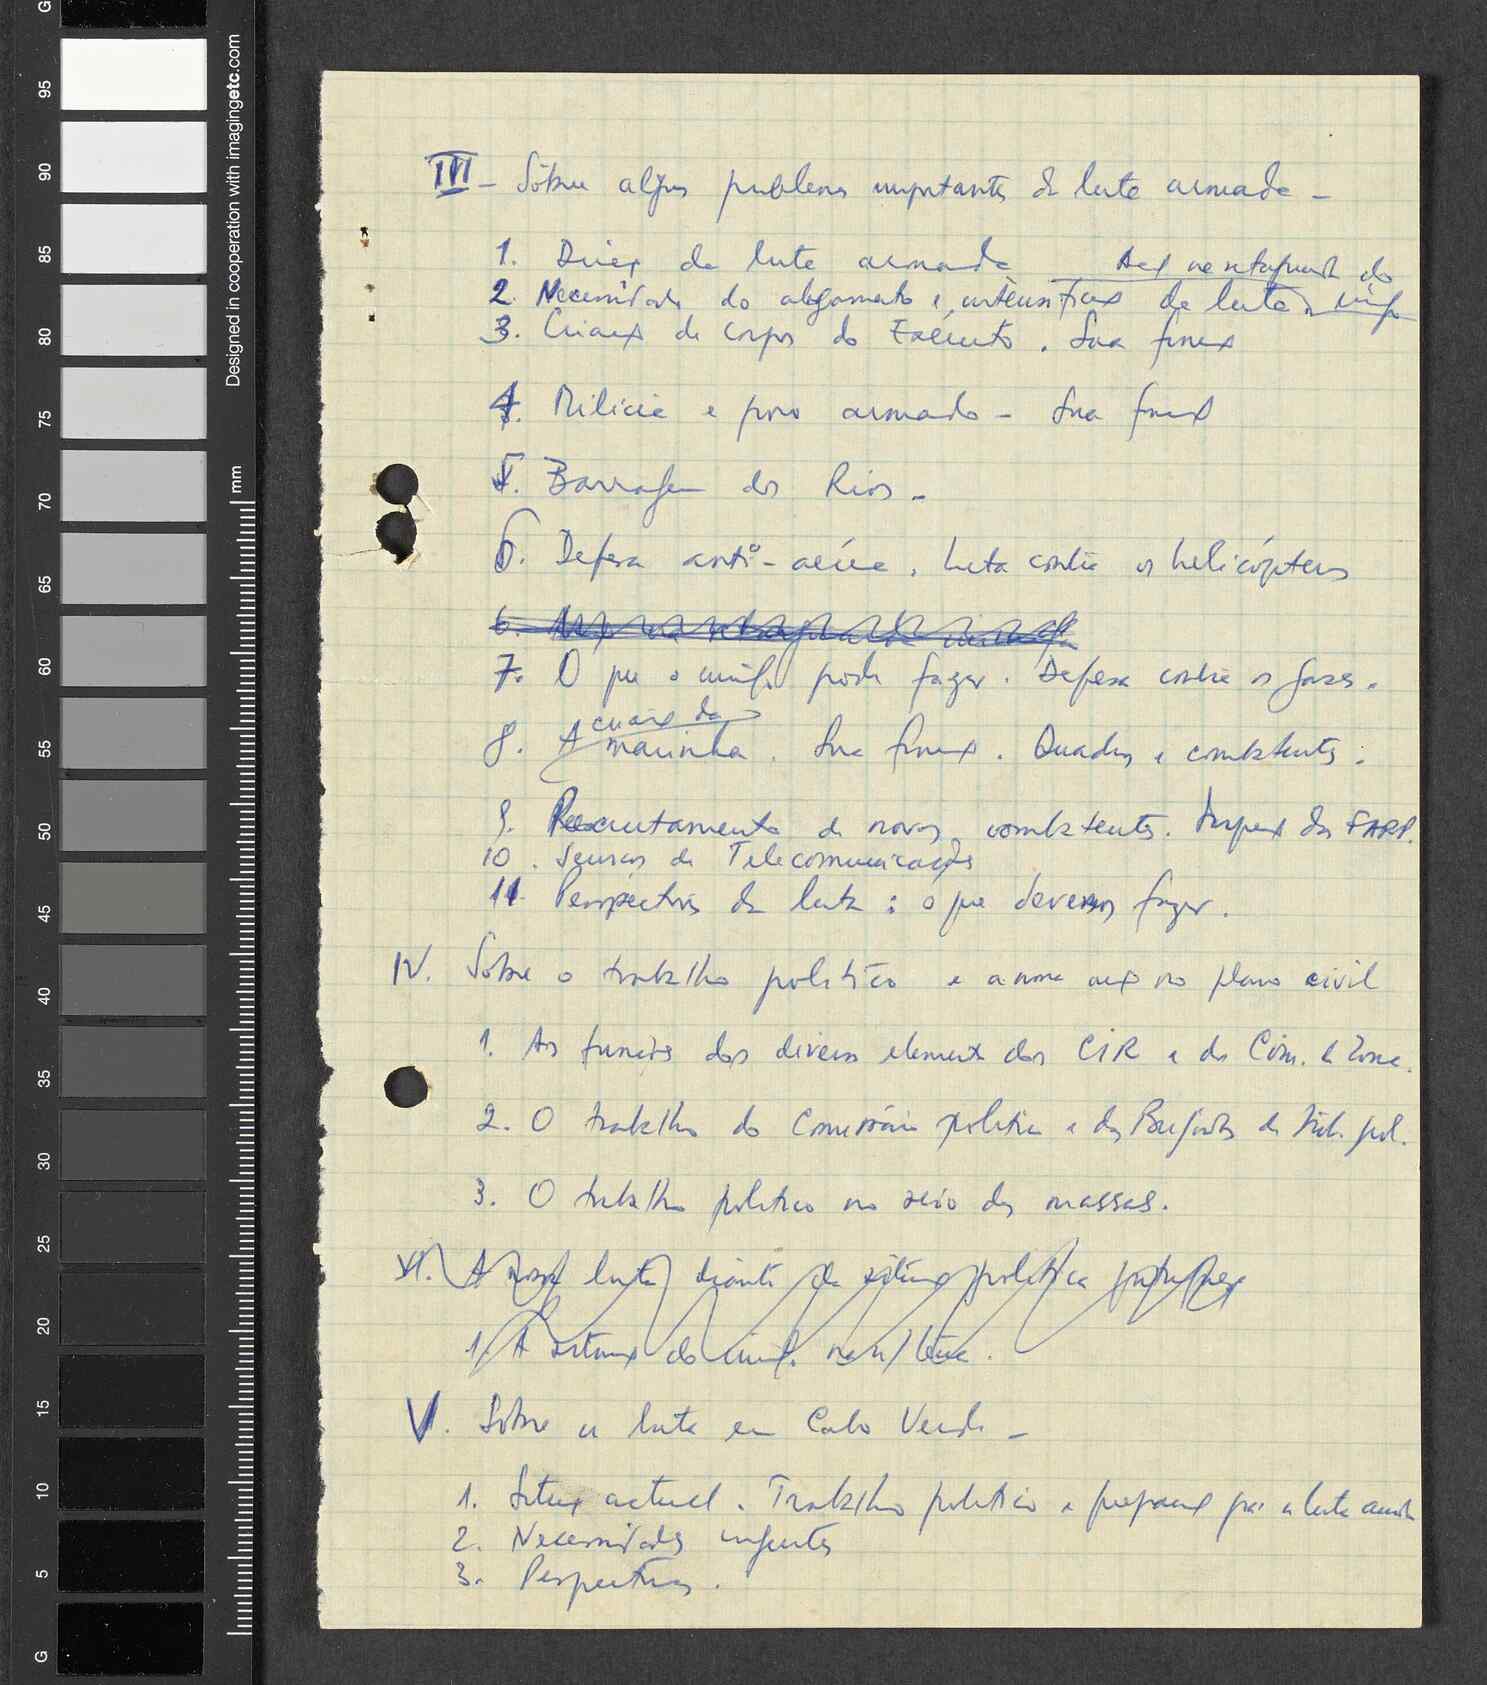 III - Sôbre alguns problemas importantes da luta armada -
1. Direcç da luta armada
Acç na retaguarda do inimigo
2. Necessidade do alargamento e intensificaç da luta
3. Criaç de corpos do Exército. Sua funç
4. Milícia e povo armado - Sua funç
5. Barragem dos Rios -
6. Defesa anti-aérea. Luta contra os helicópteros
6.
7. O que o inimigo pode fazer. Defesa contra os gases.
8. A criaç da marinha. Sua funç. Quadros e combatentes.
9. Recrutamento de novos combatentes. das FARP.
10. Serviços de Telecomunicações
11. Perspectivas da luta: o que devemos fazer.
IV. Sobre o trabalho político e a nossa acç no plano civil
1. As funções dos diversos elementos dos CIR e do Com. de Zona.
2. O trabalho do Comissário político e das Brigadas de Trab. pol.
3. O trabalho político no seio das massas.
VI. A nossa luta diante da situaç política portuguesa
1. A situaç do inim. na
V. Sobre a luta em Cabo Verde -
1. Situaç actual. Trabalho político e preparaç para a luta armada
2. Necessidades urgentes
3. Perspectivas.
Designed in cooperation with imagingetc.com
mm
G 95 90 85 80 75 70 65 60 55 50 45 40 35 30 25 20 15 10 5 G